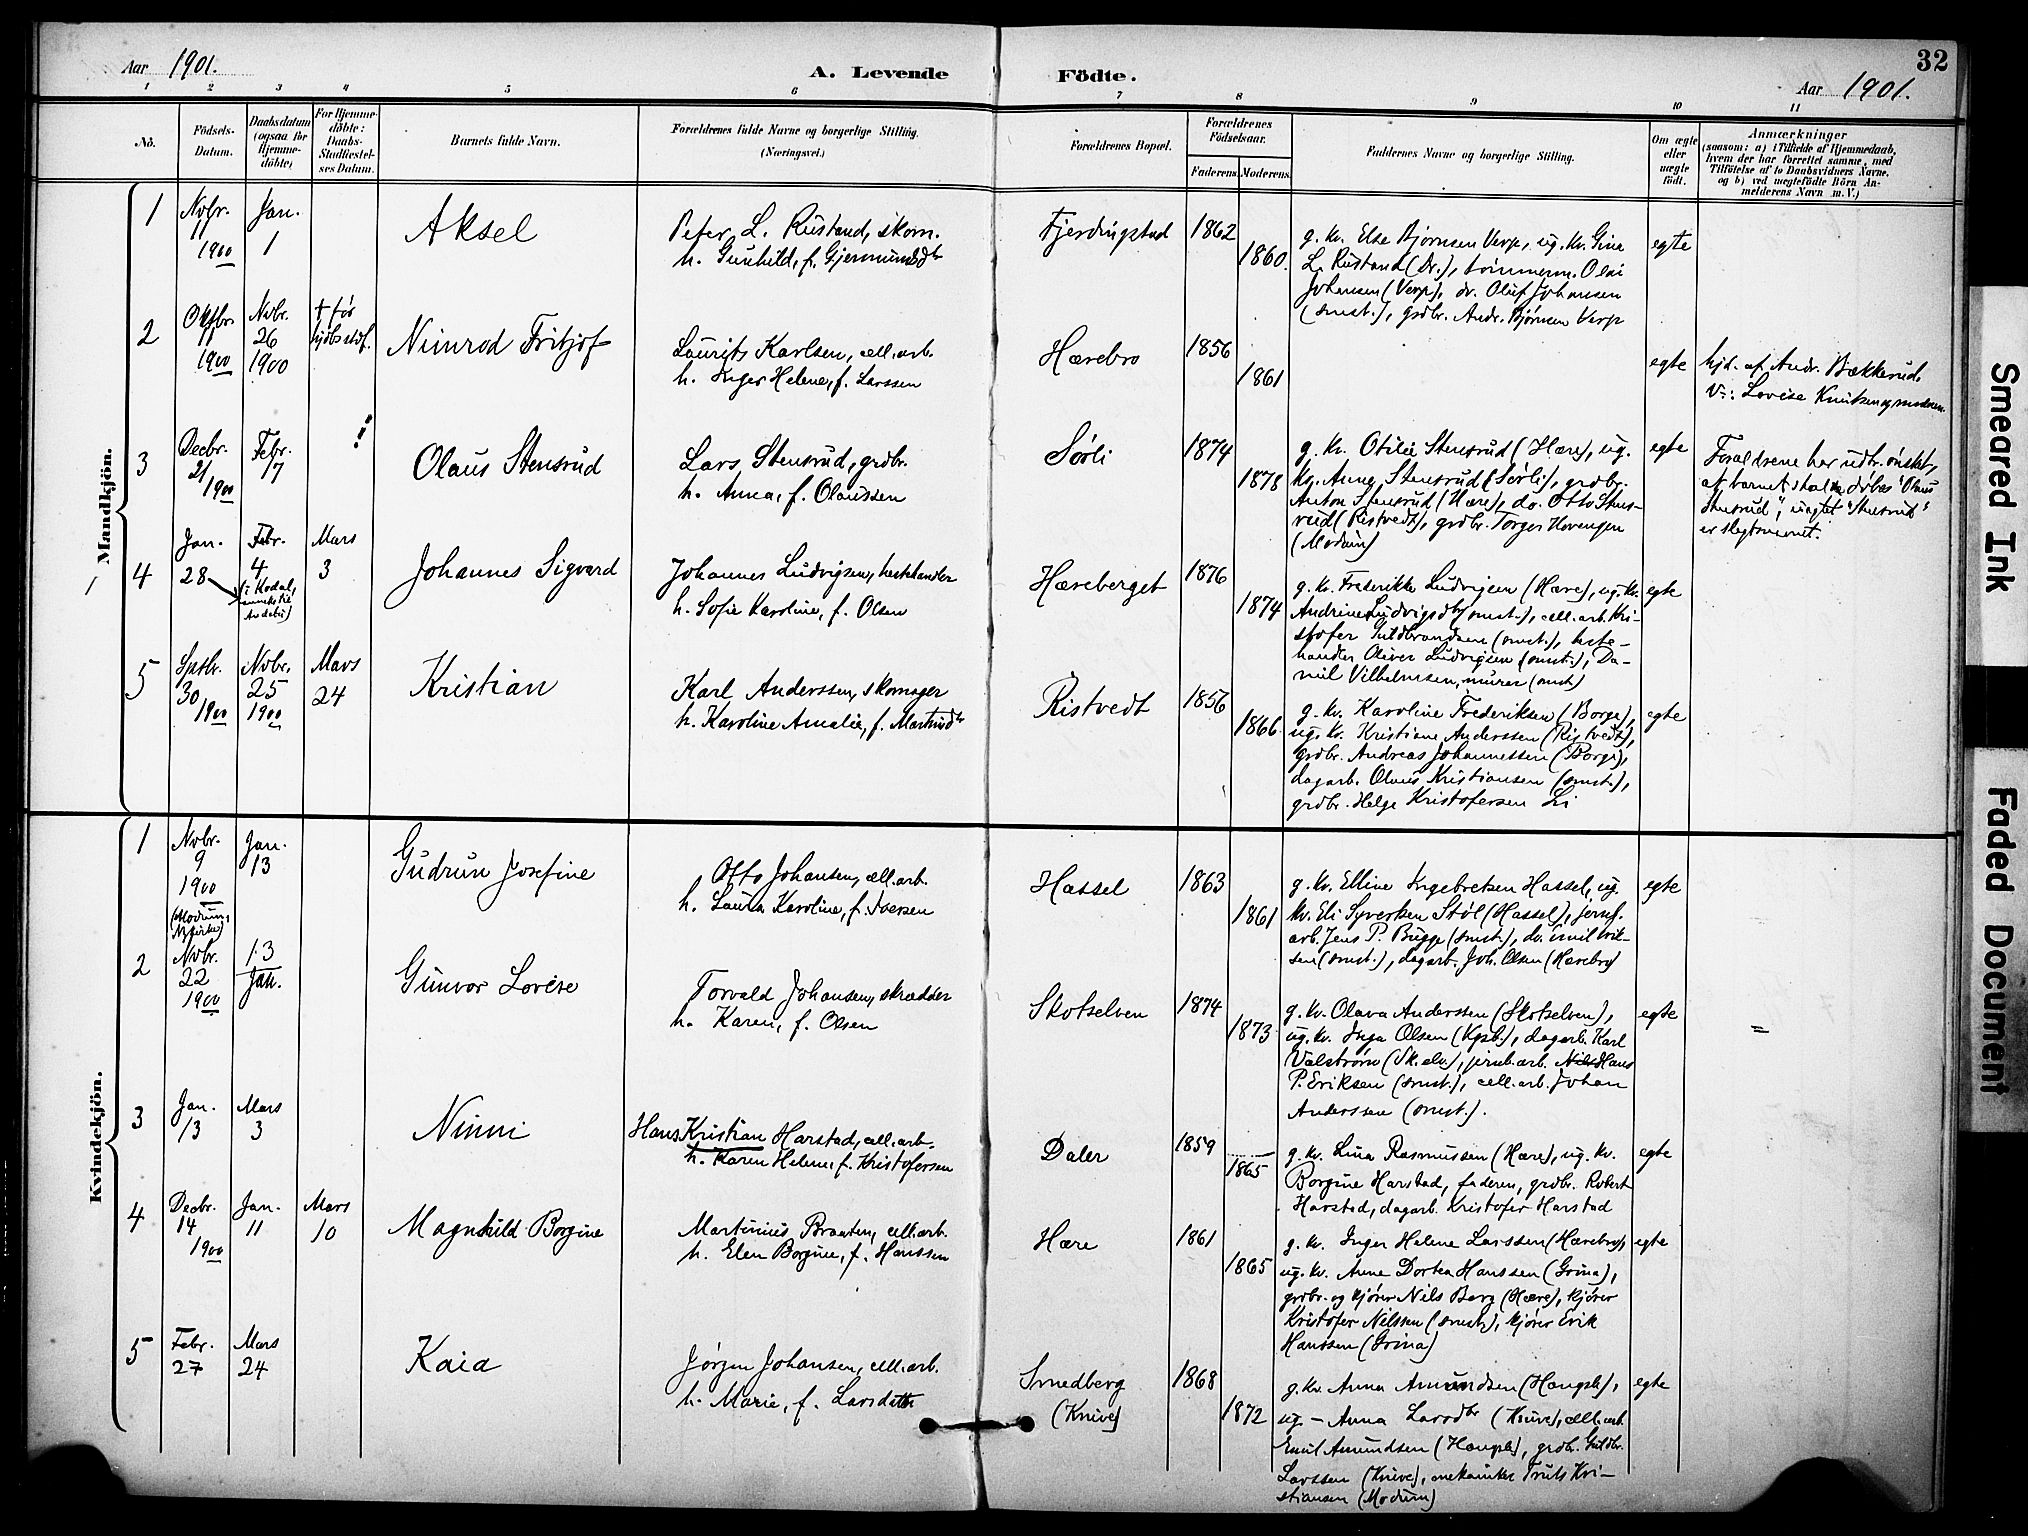 Aar 1901.
A. Levende Födte.
32
Aar 1901.
1 2 3 4 5 6 7 8 9 10 11
No.
Födsels-
Datum.
Daabsdatum
(ogsaa for
Hjemme-
döbte)
For Hjemme-
döbte:
Daabs-
Stadfæstel-
ses Datum.
Barnets fulde Navn.
Forældrenes fulde Navne og borgerlige Stilling.
(Næringsvei.)
Forældrenes Bopæl.
Forældrenes
Födselsaar.
Faderens. Moderens.
Faddernes Navne og borgerlige Stilling.
Om ægte
eller
uægte
födt.
Anmærkninger
(saasom: a) i Tilfælde af Hjemmedaab,
hvem der har forrettet samme, med
Tilföielse af to Daabsvidners Navne.
og b) ved uægtefödte Börn An-
melderens Navn m. V.)
Mandkjön.
1
Novbr.
11
1900
Jan.
1
Aksel
Peter L. Rustand, skom.
h. Gunhild, f. Gjermundsdtr
Fjerdingstad
1862
1860.
g. kv. Else Bjørnsen Verp, ug. kv. Gina
L. Rustand (Dr.), tømmerm. Olai
Johansen (Verp), dr. Oluf Johansen
(smst.), grdbr. Andr. Bjørnsen Verp
egte
2
Oktbr.
11
1900
Novbr.
26
1900
† før
Nimrod Fritjof
Laurits Karlsen, cell.arb.
h. Inger Helene, f. Larssen
Hærebro
1856
1861
egte
hjd. af Andr. Bækkerud.
V:: Lovise Knutsen og moderen.
3
Decbr.
21
1900
Febr.
17
Olaus Stensrud
Lars Stensrud, grdbr.
h. Anna, f. Olaussen
Sørli
1874
1878
g. kv. Otilie Stensrud (Hære), ug.
kv. Anna Stensrud (Sørli), grdbr.
Anton Stensrud (Hære), do. Otto Stens-
rud (Ristvedt), grdbr. Torger Hovengen
(Modum)
egte
Forældrene har udtr. ønsket,
at barnet skal døbes "Olaus
Stensrud", uagtet "Stensrud"
er slegtsnavnet.
4
Jan.
28
Febr.
4
(i Kodal,
anneks til
Andebu)
Mars
3
Johannes Sigvard
Johannes Ludvigsen, hestehandler
h. Sofie Karoline, f. Olsen
Hæreberget
1876
1874
g. kv. Frederikke Ludvigsen (Hære), ug. kv.
Andrine Ludvigsdtr (smst.), cell.arb. Kri-
stofer Guldbrandsen (smst.), heste-
handler Oliver Ludvigsen (smst.), Da-
niel Vilhelmsen, murer (smst)
egte
5
Septbr.
30
1900
Novbr.
25
1900
Mars
24
Kristian
Karl Anderssen, skomager
h. Karoline Amalie, f. Martinsdtr
Ristvedt
1856
1866.
g. kv. Karoline Frederiksen (Borge),
ug. kv. Kristiane Anderssen (Ristvedt),
grdbr. Andreas Johannessen (Borge),
dagarb. Olaus Kristiansen (smst.),
grdbr. Helge Kristofersen Li
egte
Kvindekjön.
1
Novbr.
9
1900
(Modum,
Nykirke)
Jan.
13
Gudrun Josefine
Otto Johansen, cell.arb.
h. Laura Karoline, f. Iversen
Hassel
1863
1861
g. kv. Elline Ingebretsen Hassel, ug.
kv. Eli Syversen Støl (Hassel), jernf.
arb. Jens P. Bugge (smst.), do. Emil Nil-
sen (smst.), dagarb. Joh. Olsen (Hærebro)
egte
2
Novbr.
22
1900
13
Jan.
Gunvor Lovise
Torvald Johansen, skrædder
h. Karen, f. Olsen
Skotselven
1874
1873
g. kv. Olava Anderssen (Skotselven),
ug. kv. Inga Olsen (Kpsb.), dagarb. Karl
Valstrøm (Sk.elv.), jernb.arb. Nils Hans
P. Eriksen (smst.), cell.arb. Johan
Anderssen (smst.).
egte
=
3
Jan.
13
Mars
3
Ninni
Hans Kristian Harstad, cell.arb.
h. Karen Helene, f. Kristofersen
Daler
1859
1865
g. kv. Lina Rasmussen (Hære), ug. kv.
Borgine Harstad, faderen, grdbr. Robert
Harstad, dagarb. Kristofer Harstad
egte
4
Decbr.
14
1900
Jan.
11
Mars
10
Magnhild Borgine
Martinius Braaten, cell.arb.
h. Elen Borgine, f. Hanssen
Hære
1861
1865
g. kv. Inger Helene Larssen (Hærebro),
ug. kv. Anne Dortea Hanssen (Grina),
grdbr. og kjører Nils Berg (Hære), kjører
Kristofer Nilssen (smst.), kjører Erik
Hanssen (Grina)
egte
5
Febr.
27
Mars
24
Kaia
Jørgen Johansen, cell.arb.
h. Marie, f. Larsdatter
Smedberg
(Knive)
1868
1872
g. kv. Anna Amundsen (Haugsb.),
ug. — Anna Larsdtr (Knive), cell.arb.
Emil Amundsen (Haugsb.), grdbr. Guldbr.
Larssen (Knive), mekaniker Truls Kri-
stiansen (Modum)
egte
Smeared Ink
Faded Document